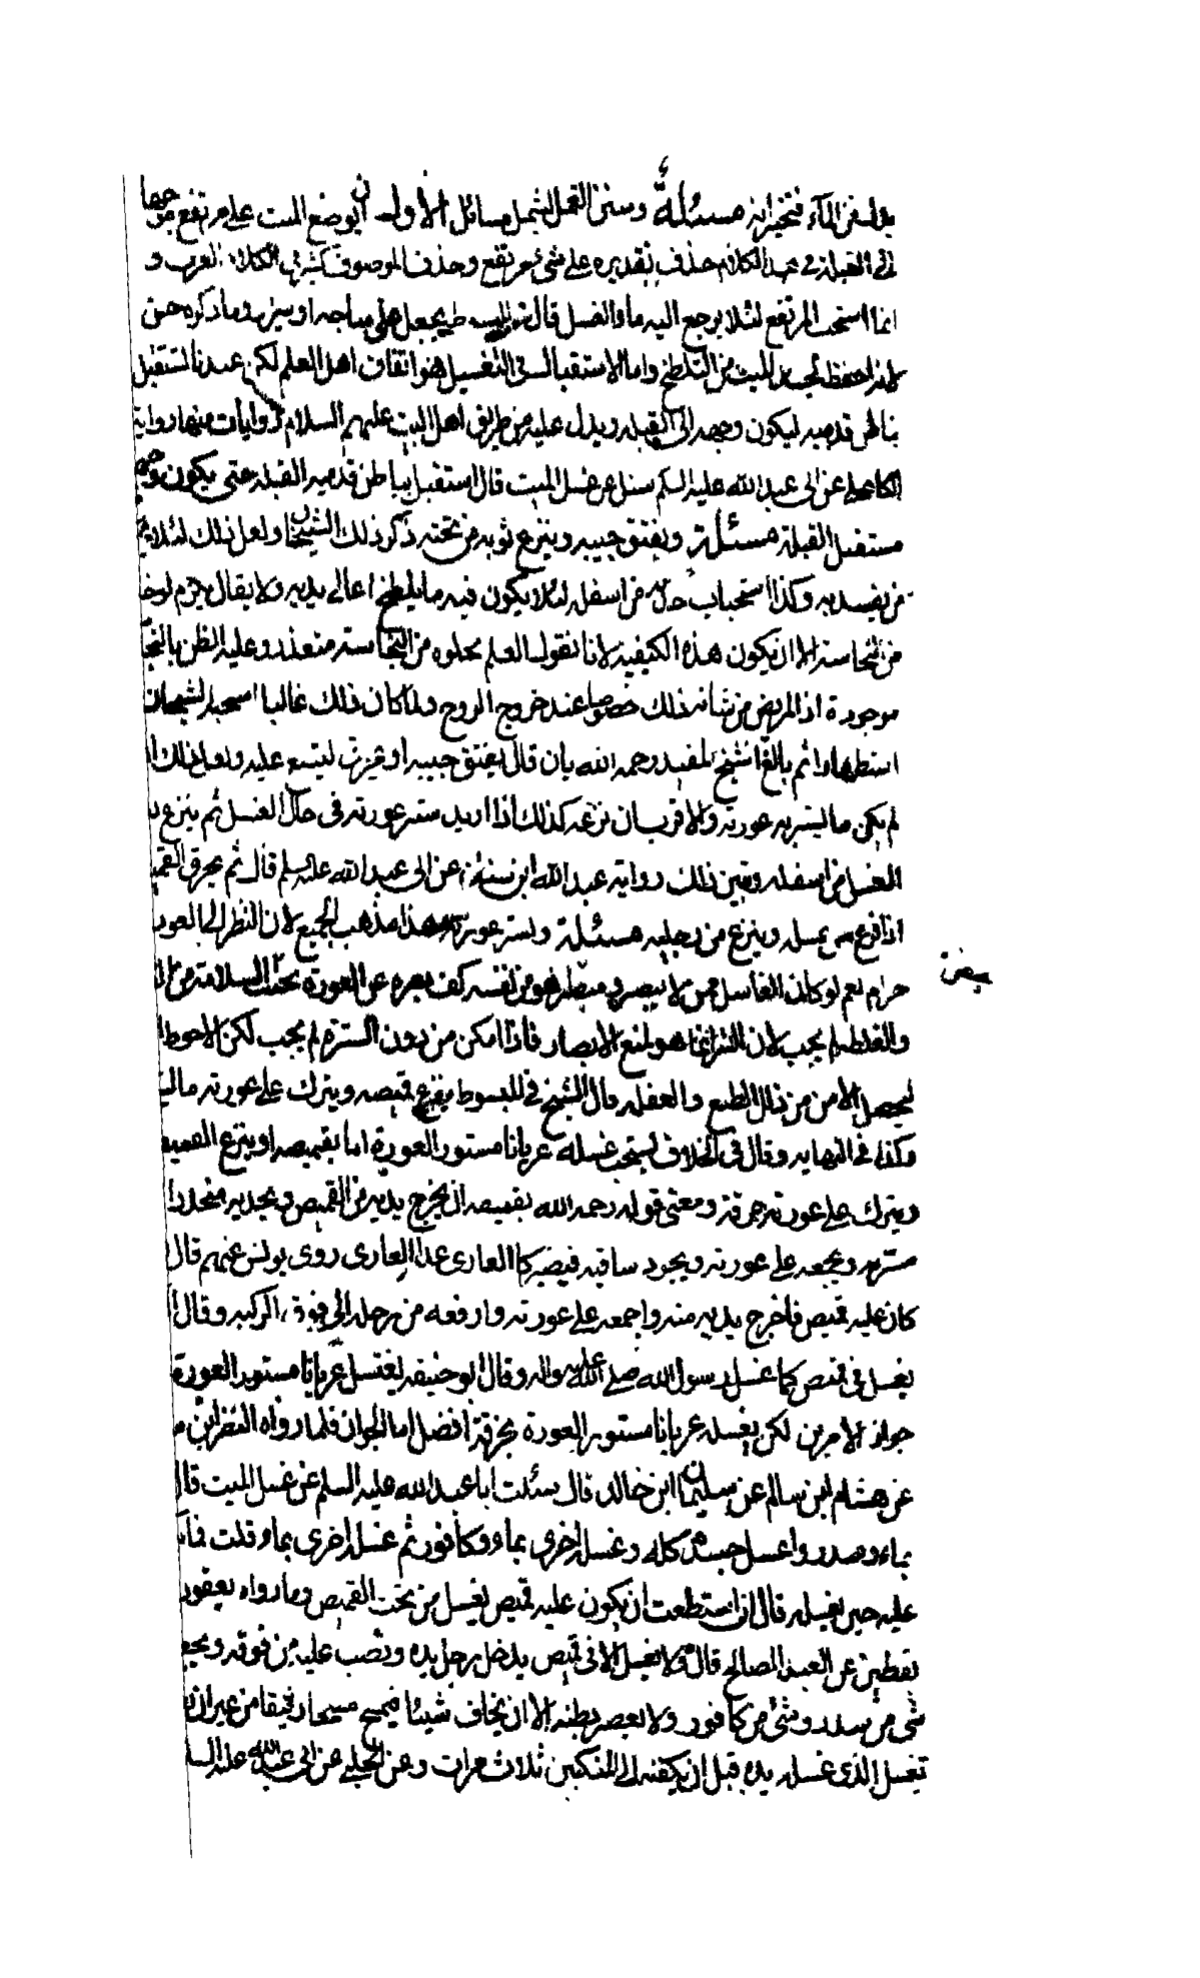 مسئلة وسنن الغسل يشمل مسائل الأولى ان يوضع الميت على مرتفع موجها
الى القبلة في هذا الكلام حذف تقديره على شئ مرتفع وحذف الموصوف كثير في الكلام العرب و
انما استحب المرتفع لئلا يرجع اليه ماء الغسل قال يجعل على ساجه او سرير وما ذكره حسن
لانه احفظ لجسد الميت من التلطخ واما الاستقبال في التغسيل فهو اتفاق اهل العلم لكن عندنا تستقبل
بباطن قدميه ليكون وجهه الى القبله ويدل عليه من طريق اهل البيت عليهم السلام روايات منها رواية
الكاهلى عن ابى عبد الله عليه السلم سئل عن غسل الميت قال استقبل بباطن قدميه القبلة حتى يكون وجهه
مستقبل القبلة مسئلة ويفتق جيبه وينزع ثوبه من تحته ذكر ذلك الشيخان ولعل ذلك لئلا
وكذا استحباب من اسفله لئلا يكون فيه ما يلطخ اعالى بدنه ولا يقال
من النجاسة الا ان يكون هذه الكيفية لانا نقول العلم بخلوه من النجاسة متعذر وغلبة الظن بالنجا
موجودة اذ المريض من شانه ذلك خصوصا عند خروج الروح ولما كان ذلك غالبا استحب الشيخان
استظهارا ثم بالغ الشيخ المفيد رحمه الله بان قال يفتق جيبه او ليتسع عليه ولعل ذلك ا
لم يكن ما يستر به عورته والاقرب ان نزعه كذلك اذا اريد ستر عورته في حال الغسل ثم ينزع
الغسل من اسفله ويبين ذلك رواية عبد الله ابن عن ابى عبد الله عليه السلم قال ثم يخرق القميص
اذا فرغ من غسله وينزع من رجليه مسئلة ولستر عورته هذا مذهب الجميع لان النظر الى العورة
حرام نعم لو كان الغاسل ممن لا يبصر من نفسه كف بصره عن العورة بحيث السلامة من
والغلط لم يجب لان الستر انما هو لمنع الابصار فاذا امكن من دون السترة لم يجب لكن الاحوط
ليحصل الامن من زلل الطبع والغفلة قال الشيخ في المبسوط ينزع قميصه ويترك على عورته ما
وكذا في النهاية وقال في الخلاف يستحب غسله عريانا مستور العورة اما بقميصه او ينزع القميص
ويترك على عورته خرقة ومعنى قوله رحمه الله بقميصه ان يخرج يديه من القميص ويجذبه منحدرا
سرته ويجمعه على عورته ويجرد ساقيه فيصير كالعارى روى يونس عنهم قال
كان عليه قميص فاخرج يديه منه واجمعه على عورته وارفعه من رجله الى فوق الركبه وقال
يغسل في قميص كما غسل رسول الله صلى الله عليه واله وقال ابو حنيفه يغتسل عريانا مستور العورة
جواز الامرين لكن يغسله عريانا مستور العورة بخرقة افضل اما الجواز فلما رواه النضر ابن
عن هشام ابن سالم عن سليمان ابن خالد قال سئلت ابا عبد الله عليه السلم عن غسل الميت قال
بماء وسدر واغسل جسده كله وغسله اخرى بماء وكافور ثم غسله اخرى بماء وقلت
عليه حين يغسله قال ان استطعت ان يكون عليه قميص يغسل من تحت القميص وما رواه يعقوب
يقطين عن العبد الصالح قال ولا يغسل الا في قميص يدخل رجل يده ويصب عليه من فوقه ويجعل
شئ من سدر وشئ من كافور ولا يعصر بطنه الا ان يخاف شيئا فيمسح مسحا رفيقا من غير ان
يغسل الذى غسله يده قبل ان يكفنه الى المنكبين ثلاث مرات وعن الحلبى عن ابى عبد الله عليه السلم